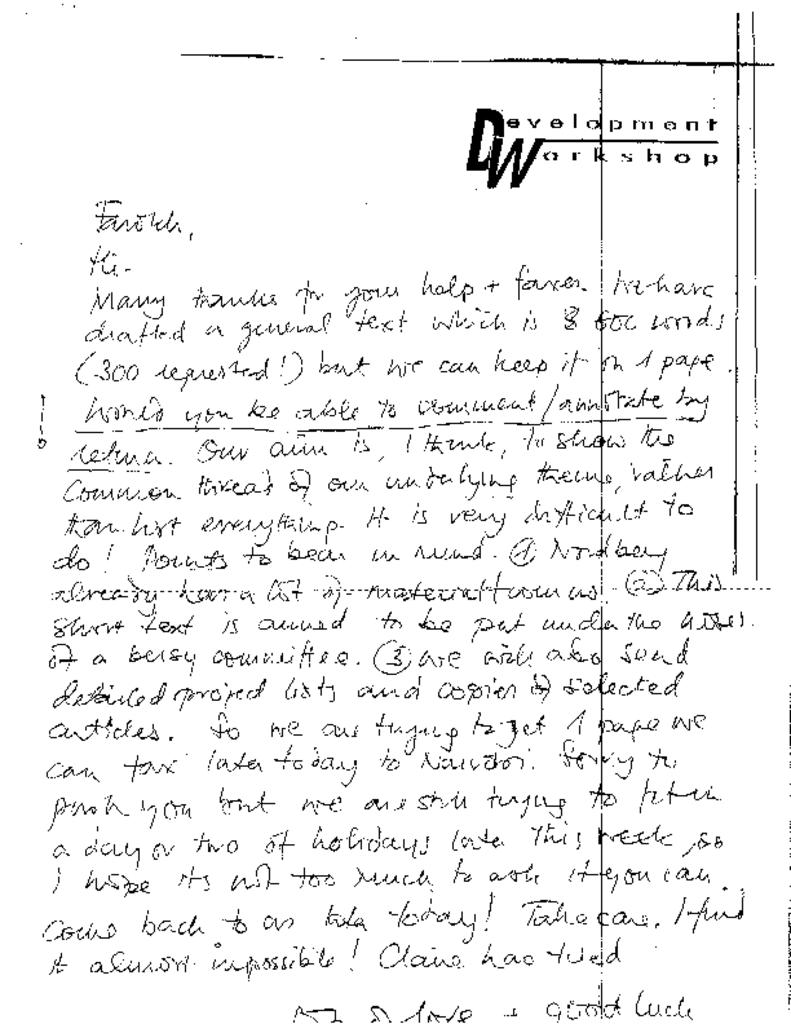 Development
Workshop
Farokh,
Hi-
Many thanks for your help + faxes. We have
drafted a general text which is 8 600 words
(300 requested!) but we can keep it on 1 page.
Would you be able to comment/annotate by
return. Our aim is, I think, to show the
common thread of our underlying theme, rather
than list everything. It is very difficult to
do! Points to bear in mind. ① Nordberg
already has a list of material from us. ② This
short text is aimed to be put under the noses
of a busy committee. ③ we will also send
detailed project lists and copies of selected
articles. So we are trying to get 1 page we
can fax later today to Nairobi. Sorry to
push you but we are still trying to fit in
a day or two of holidays later this week, so
I hope its not too much to ask if you can
come back to us today! Take care. I find
it almost impossible! Claire has tried
of love + good luck